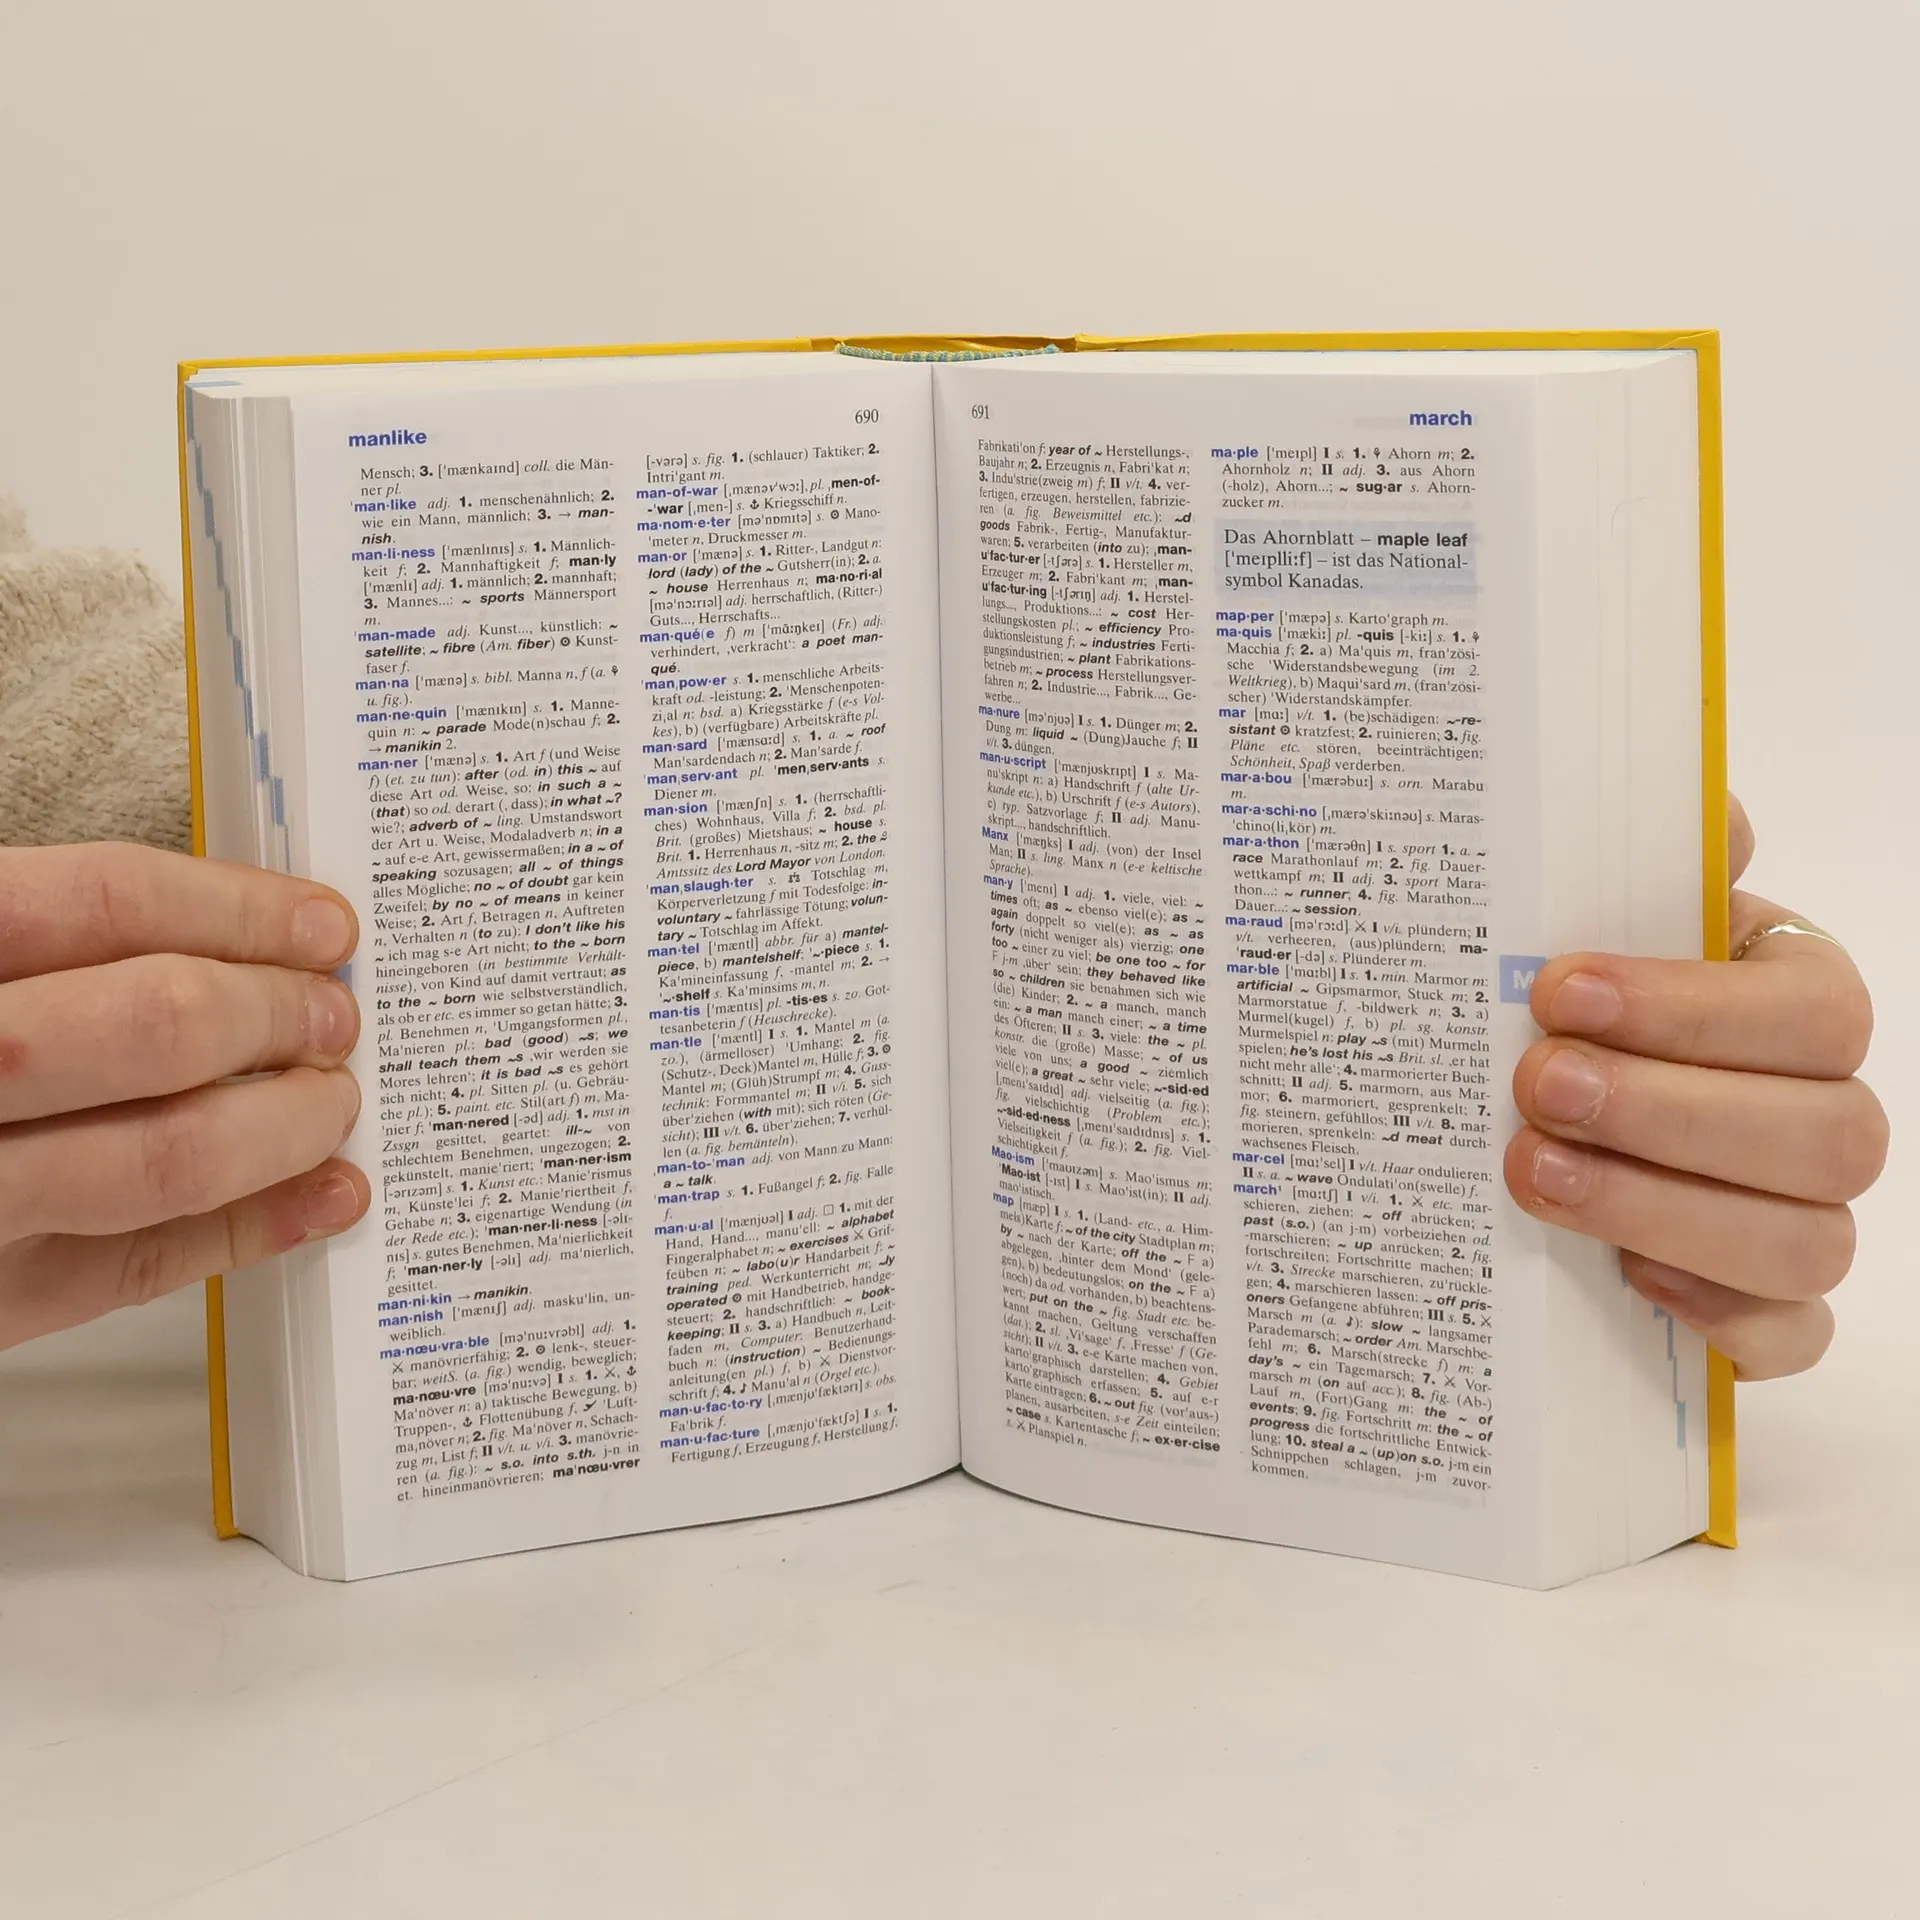 manlike
690
Mensch; 3. ['mænkaɪnd] coll. die Män-
ner pl.
'man·like adj. 1. menschenähnlich; 2.
wie ein Mann, männlich; 3. → man-
nish.
man·li·ness ['mænlɪnɪs] s. 1. Männlich-
keit f; 2. Mannhaftigkeit f; man·ly
['mænlɪ] adj. 1. männlich; 2. mannhaft;
3. Mannes...: ~ sports Männersport
m.
'man-made adj. Kunst..., künstlich: ~
satellite; ~ fibre (Am. fiber) ⚙ Kunst-
faser f.
man·na ['mænə] s. bibl. Manna n, f (a. ⚘
u. fig.).
man·ne·quin ['mænɪkɪn] s. 1. Manne-
quin n: ~ parade Mode(n)schau f; 2.
→ manikin 2.
man·ner ['mænə] s. 1. Art f (und Weise
f) (et. zu tun): after (od. in) this ~ auf
diese Art od. Weise, so; in such a ~
(that) so od. derart (, dass); in what ~?
wie?; adverb of ~ ling. Umstandswort
der Art u. Weise, Modaladverb n; in a
~ auf e-e Art, gewissermaßen; in a ~ of
speaking sozusagen; all ~ of things
alles Mögliche; no ~ of doubt gar kein
Zweifel; by no ~ of means in keiner
Weise; 2. Art f, Betragen n, Auftreten
n, Verhalten n (to zu): I don't like his
~ ich mag s-e Art nicht; to the ~ born
hineingeboren (in bestimmte Verhält-
nisse), von Kind auf damit vertraut; as
to the ~ born wie selbstverständlich,
als ob er etc. es immer so getan hätte; 3.
pl. Benehmen n, 'Umgangsformen pl.,
Ma'nieren pl.: bad (good) ~s; we
shall teach them ~s ‚wir werden sie
Mores lehren'; it is bad ~s es gehört
sich nicht; 4. pl. Sitten pl. (u. Gebräu-
che pl.); 5. paint. etc. Stil(art f) m, Ma-
'nier f; 'man·nered [-əd] adj. 1. mst in
Zssgn gesittet, geartet: ill-~ von
schlechtem Benehmen, ungezogen; 2.
gekünstelt, manie'riert; 'man·ner·ism
[-ərɪzəm] s. 1. Kunst etc.: Manie'rismus
m, Künste'lei f; 2. Manie'riertheit f,
Gehabe n; 3. eigenartige Wendung (in
der Rede etc.); 'man·ner·li·ness [-əlɪ-
nɪs] s. gutes Benehmen, Ma'nierlichkeit
f; 'man·ner·ly [-əlɪ] adj. ma'nierlich,
gesittet.
man·ni·kin → manikin.
man·nish ['mænɪʃ] adj. masku'lin, un-
weiblich.
ma·nœu·vra·ble [mə'nuːvrəbl] adj. 1.
⚔ manövrierfähig; 2. ⚙ lenk-, steuer-
bar; weitS. (a. fig.) wendig, beweglich;
ma·nœu·vre [mə'nuːvə] I s. 1. ⚔, ⚓
Ma'növer n: a) taktische Bewegung, b)
Truppen-, ⚓ Flottenübung f, ✈ 'Luft-
ma,növer n; 2. fig. Ma'növer n, Schach-
zug m, List f; II v/t. u. v/i. 3. manövrie-
ren (a. fig.): ~ s.o. into s.th. j-n in
et. hineinmanövrieren; ma'nœu·vrer
[-vərə] s. fig. 1. (schlauer) Taktiker; 2.
Intri'gant m.
man-of-war [ˌmænəv'wɔː], pl. ˌmen-of-
-'war [ˌmen-] s. ⚓ Kriegsschiff n.
ma·nom·e·ter [mə'nɒmɪtə] s. ⚙ Mano-
'meter n, Druckmesser m.
man·or ['mænə] s. 1. Ritter-, Landgut n:
lord (lady) of the ~ Gutsherr(in); 2. a.
~ house Herrenhaus n; ma·no·ri·al
[mə'nɔːrɪəl] adj. herrschaftlich, (Ritter-)
Guts..., Herrschafts...
man·qué(e f) m ['mɑ̃ːŋkeɪ] (Fr.) adj.
verhindert, ‚verkracht': a poet man-
qué.
'man,pow·er s. 1. menschliche Arbeits-
kraft od. -leistung; 2. 'Menschenpoten-
zi,al n: bsd. a) Kriegsstärke f (e-s Vol-
kes), b) (verfügbare) Arbeitskräfte pl.
man·sard ['mænsɑːd] s. 1. a. ~ roof
Man'sardendach n; 2. Man'sarde f.
'man,serv·ant pl. 'men,serv·ants s.
Diener m.
man·sion ['mænʃn] s. 1. (herrschaftli-
ches) Wohnhaus, Villa f; 2. bsd. pl.
Brit. (großes) Mietshaus; ~ house s.
Brit. 1. Herrenhaus n, -sitz m; 2. the ♀
Amtssitz des Lord Mayor von London.
'man,slaugh·ter s. ⚖ Totschlag m,
Körperverletzung f mit Todesfolge: in-
voluntary ~ fahrlässige Tötung; volun-
tary ~ Totschlag im Affekt.
man·tel ['mæntl] abbr. für a) mantel-
piece, b) mantelshelf; '~·piece s. 1.
Ka'mineinfassung f, -mantel m; 2. →
'~·shelf s. Ka'minsims m, n.
man·tis ['mæntɪs] pl. -tis·es s. zo. Got-
tesanbeterin f (Heuschrecke).
man·tle ['mæntl] I s. 1. Mantel m (a.
zo.), (ärmelloser) 'Umhang; 2. fig.
(Schutz-, Deck)Mantel m, Hülle f; 3. ⚙
Mantel m; (Glüh)Strumpf m; 4. Guss-
technik: Formmantel m; II v/i. 5. sich
über'ziehen (with mit); sich röten (Ge-
sicht); III v/t. 6. über'ziehen; 7. verhül-
len (a. fig. bemänteln).
ˌman-to-'man adj. von Mann zu Mann:
a ~ talk.
'man·trap s. 1. Fußangel f; 2. fig. Falle
f.
man·u·al ['mænjʊəl] I adj. □ 1. mit der
Hand, Hand..., manu'ell: ~ alphabet
Fingeralphabet n; ~ exercises ⚔ Grif-
feüben n; ~ labo(u)r Handarbeit f; ~
training ped. Werkunterricht m; ~ly
operated ⚙ mit Handbetrieb, handge-
steuert; 2. handschriftlich: ~ book-
keeping; II s. 3. a) Handbuch n, Leit-
faden m, Computer: Benutzerhand-
buch n: (instruction) ~ Bedienungs-
anleitung(en pl.) f, b) ⚔ Dienstvor-
schrift f; 4. ♪ Manu'al n (Orgel etc.).
man·u·fac·to·ry [ˌmænjʊ'fæktərɪ] s. obs.
Fa'brik f.
man·u·fac·ture [ˌmænjʊ'fæktʃə] I s. 1.
Fertigung f, Erzeugung f, Herstellung f,
691
march
Fabrikati'on f: year of ~ Herstellungs-,
Baujahr n; 2. Erzeugnis n, Fabri'kat n;
3. Indu'strie(zweig m) f; II v/t. 4. ver-
fertigen, erzeugen, herstellen, fabrizie-
ren (a. fig. Beweismittel etc.): ~d
goods Fabrik-, Fertig-, Manufaktur-
waren; 5. verarbeiten (into zu); ˌman-
u'fac·tur·er [-tʃərə] s. 1. Hersteller m,
Erzeuger m; 2. Fabri'kant m; ˌman-
u'fac·tur·ing [-tʃərɪŋ] adj. 1. Herstel-
lungs..., Produktions...: ~ cost Her-
stellungskosten pl.; ~ efficiency Pro-
duktionsleistung f; ~ industries Ferti-
gungsindustrien; ~ plant Fabrikations-
betrieb m; ~ process Herstellungsver-
fahren n; 2. Industrie..., Fabrik..., Ge-
werbe...
ma·nure [mə'njʊə] I s. 1. Dünger m; 2.
Dung m: liquid ~ (Dung)Jauche f; II
v/t. 3. düngen.
man·u·script ['mænjʊskrɪpt] I s. Ma-
nu'skript n: a) Handschrift f (alte Ur-
kunde etc.), b) Urschrift f (e-s Autors),
c) typ. Satzvorlage f; II adj. Manu-
skript..., handschriftlich.
Manx [mæŋks] I adj. (von) der Insel
Man; II s. ling. Manx n (e-e keltische
Sprache).
man·y ['menɪ] I adj. 1. viele, viel: ~
times oft; as ~ ebenso viel(e); as ~
again doppelt so viel(e); as ~ as
forty (nicht weniger als) vierzig; one
too ~ einer zu viel; be one too ~ for
F j-m ‚über' sein; they behaved like
so ~ children sie benahmen sich wie
(die) Kinder; 2. ~ a manch, manch
ein: ~ a man manch einer; ~ a time
des Öfteren; II s. 3. viele: the ~ pl.
konstr. die (große) Masse; ~ of us
viele von uns; a good ~ ziemlich
viel(e); a great ~ sehr viele; ~-sid·ed
[ˌmenɪ'saɪdɪd] adj. vielseitig (a. fig.);
fig. vielschichtig (Problem etc.);
~-sid·ed·ness [ˌmenɪ'saɪdɪdnɪs] s. 1.
Vielseitigkeit f (a. fig.); 2. fig. Viel-
schichtigkeit f.
Mao·ism ['maʊɪzəm] s. Mao'ismus m;
'Mao·ist [-ɪst] I s. Mao'ist(in); II adj.
mao'istisch.
map [mæp] I s. 1. (Land- etc., a. Him-
mels)Karte f; ~ of the city Stadtplan m;
by ~ nach der Karte; off the ~ F a)
abgelegen, ‚hinter dem Mond' (gele-
gen), b) bedeutungslos; on the ~ F a)
(noch) da od. vorhanden, b) beachtens-
wert; put on the ~ fig. Stadt etc. be-
kannt machen, Geltung verschaffen
(dat.); 2. sl. ‚Vi'sage' f, ‚Fresse' f (Ge-
sicht); II v/t. 3. e-e Karte machen von,
karto'graphisch darstellen; 4. Gebiet
karto'graphisch erfassen; 5. auf e-r
Karte eintragen; 6. ~ out fig. (vor'aus-)
planen, ausarbeiten, s-e Zeit einteilen;
~ case s. Kartentasche f; ~ ex·er·cise
s. ⚔ Planspiel n.
ma·ple ['meɪpl] I s. 1. ⚘ Ahorn m; 2.
Ahornholz n; II adj. 3. aus Ahorn
(-holz), Ahorn...; ~ sug·ar s. Ahorn-
zucker m.
Das Ahornblatt – maple leaf
['meɪplliːf] – ist das National-
symbol Kanadas.
map·per ['mæpə] s. Karto'graph m.
ma·quis ['mækiː] pl. -quis [-kiː] s. 1. ⚘
Macchia f; 2. a) Ma'quis m, fran'zösi-
sche 'Widerstandsbewegung (im 2.
Weltkrieg), b) Maqui'sard m, (fran'zösi-
scher) 'Widerstandskämpfer.
mar [mɑː] v/t. 1. (be)schädigen: ~-re-
sistant ⚙ kratzfest; 2. ruinieren; 3. fig.
Pläne etc. stören, beeinträchtigen;
Schönheit, Spaß verderben.
mar·a·bou ['mærəbuː] s. orn. Marabu
m.
mar·a·schi·no [ˌmærə'skiːnəʊ] s. Maras-
'chino(li,kör) m.
mar·a·thon ['mærəθn] I s. sport 1. a. ~
race Marathonlauf m; 2. fig. Dauer-
wettkampf m; II adj. 3. sport Mara-
thon...: ~ runner; 4. fig. Marathon...,
Dauer...: ~ session.
ma·raud [mə'rɔːd] ⚔ I v/i. plündern; II
v/t. verheeren, (aus)plündern; ma-
'raud·er [-də] s. Plünderer m.
mar·ble ['mɑːbl] I s. 1. min. Marmor m:
artificial ~ Gipsmarmor, Stuck m; 2.
Marmorstatue f, -bildwerk n; 3. a)
Murmel(kugel) f, b) pl. sg. konstr.
Murmelspiel n: play ~s (mit) Murmeln
spielen; he's lost his ~s Brit. sl. ‚er hat
nicht mehr alle'; 4. marmorierter Buch-
schnitt; II adj. 5. marmorn, aus Mar-
mor; 6. marmoriert, gesprenkelt; 7.
fig. steinern, gefühllos; III v/t. 8. mar-
morieren, sprenkeln: ~d meat durch-
wachsenes Fleisch.
mar·cel [mɑː'sel] I v/t. Haar ondulieren;
II s. a. ~ wave Ondulati'on(swelle) f.
march¹ [mɑːtʃ] I v/i. 1. ⚔ etc. mar-
schieren, ziehen: ~ off abrücken; ~
past (s.o.) (an j-m) vorbeiziehen od.
-marschieren; ~ up anrücken; 2. fig.
fortschreiten; Fortschritte machen; II
v/t. 3. Strecke marschieren, zu'rückle-
gen; 4. marschieren lassen: ~ off pris-
oners Gefangene abführen; III s. 5. ⚔
Marsch m (a. ♪): slow ~ langsamer
Parademarsch; ~ order Am. Marschbe-
fehl m; 6. Marsch(strecke f) m: a
day's ~ ein Tagemarsch; 7. ⚔ Vor-
marsch m (on auf acc.); 8. fig. (Ab-)
Lauf m, (Fort)Gang m: the ~ of
events; 9. fig. Fortschritt m: the ~ of
progress die fortschrittliche Entwick-
lung; 10. steal a ~ (up)on s.o. j-m ein
Schnippchen schlagen, j-m zuvor-
kommen.
M